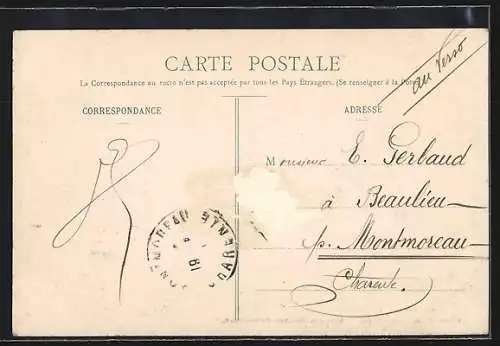 CARTE POSTALE
La Correspondance au recto n'est pas acceptée par tous les Pays Etrangers. (Se renseigner à la Poste)
au Verso
CORRESPONDANCE
ADRESSE
Monsieur E. Gerbaud
à Beaulieu
p. Montmoreau
Charente.
MONTMOREAU CHARENTE
19